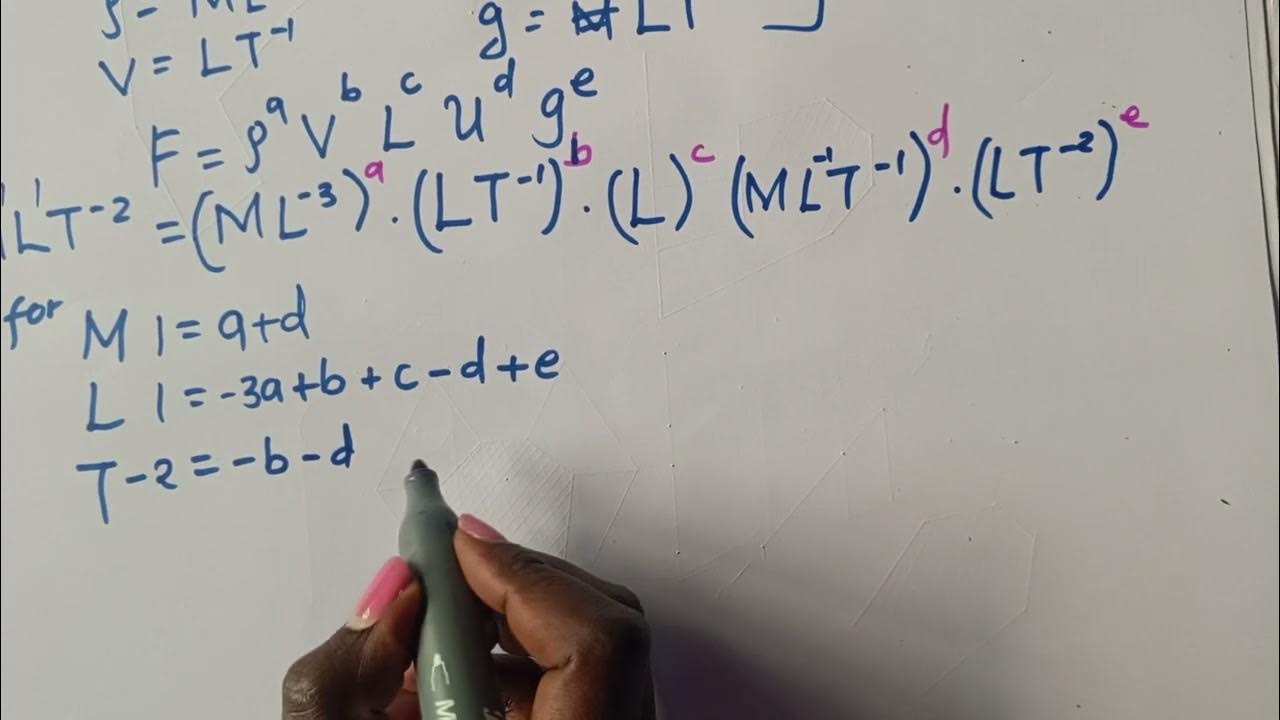 ρ = ML
g = LT
V = LT⁻¹
F = ρᵃ Vᵇ Lᶜ Uᵈ gᵉ
L¹T⁻² = (ML⁻³)ᵃ · (LT⁻¹)ᵇ · (L)ᶜ (ML⁻¹T⁻¹)ᵈ · (LT⁻²)ᵉ
for M 1 = a+d
L 1 = -3a+b+c-d+e
T -2 = -b-d
CM